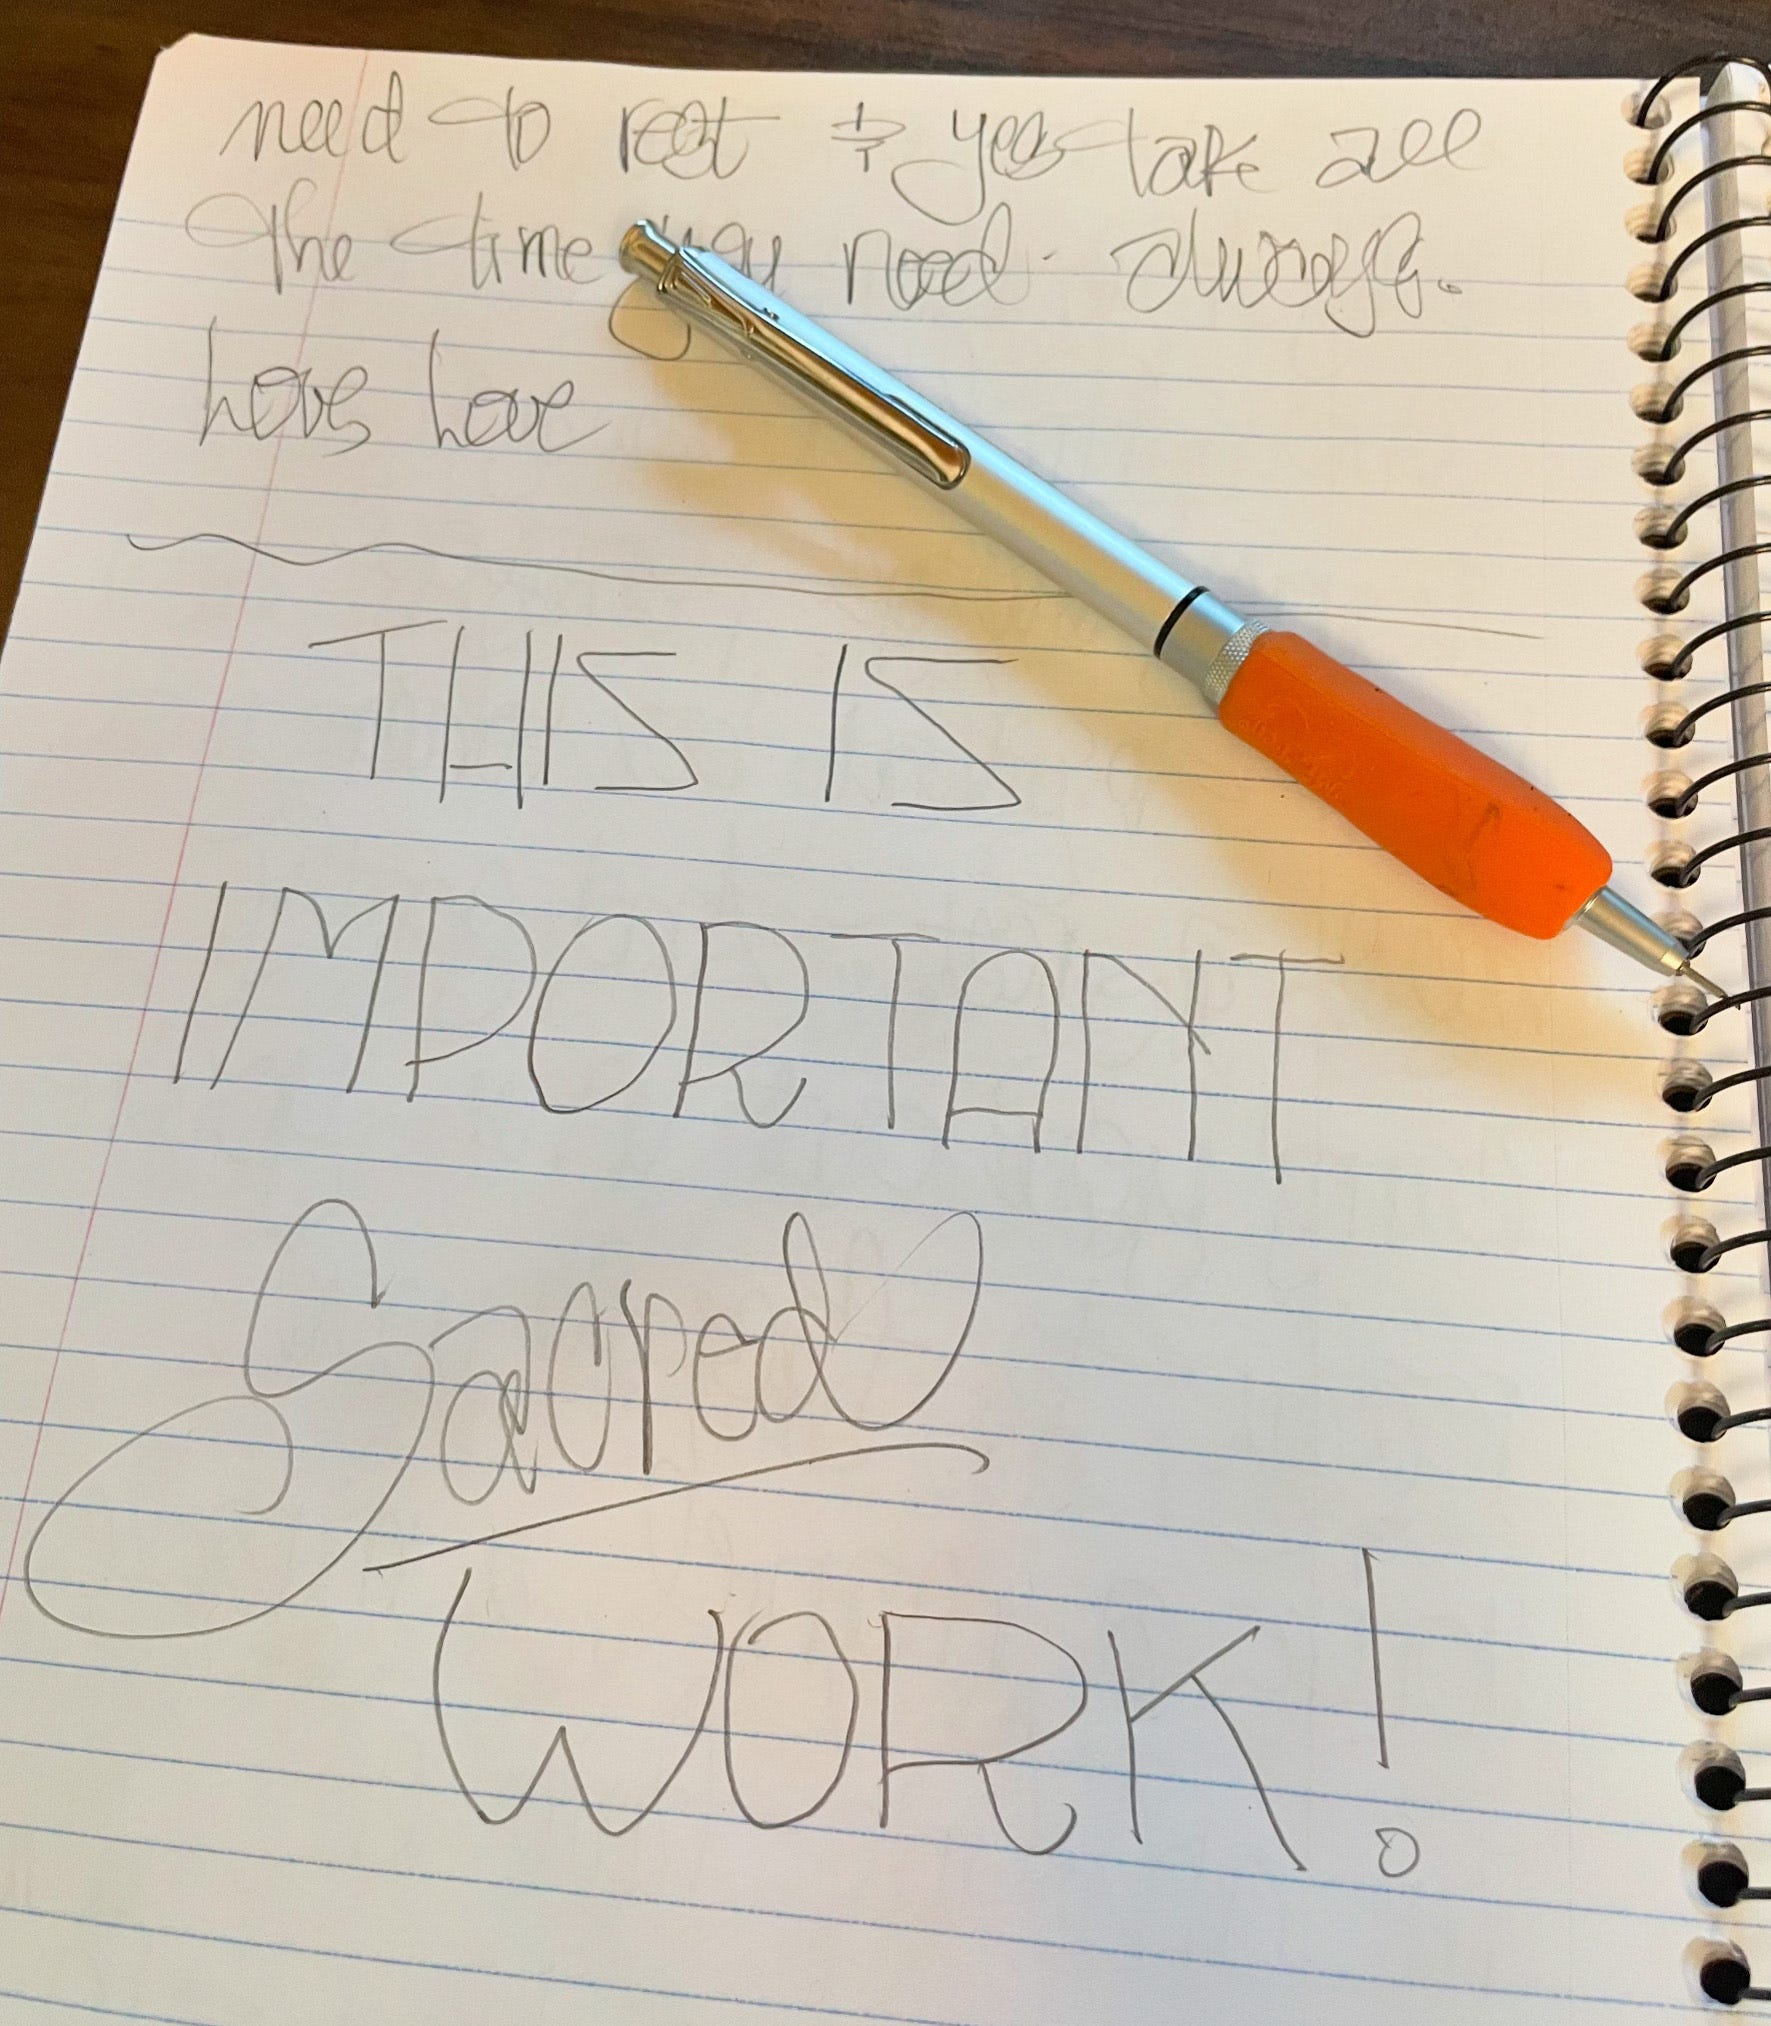 need to rest + yes take all
the time you need. always.
Love Love
THIS IS
IMPORTANT
Sacred
WORK!